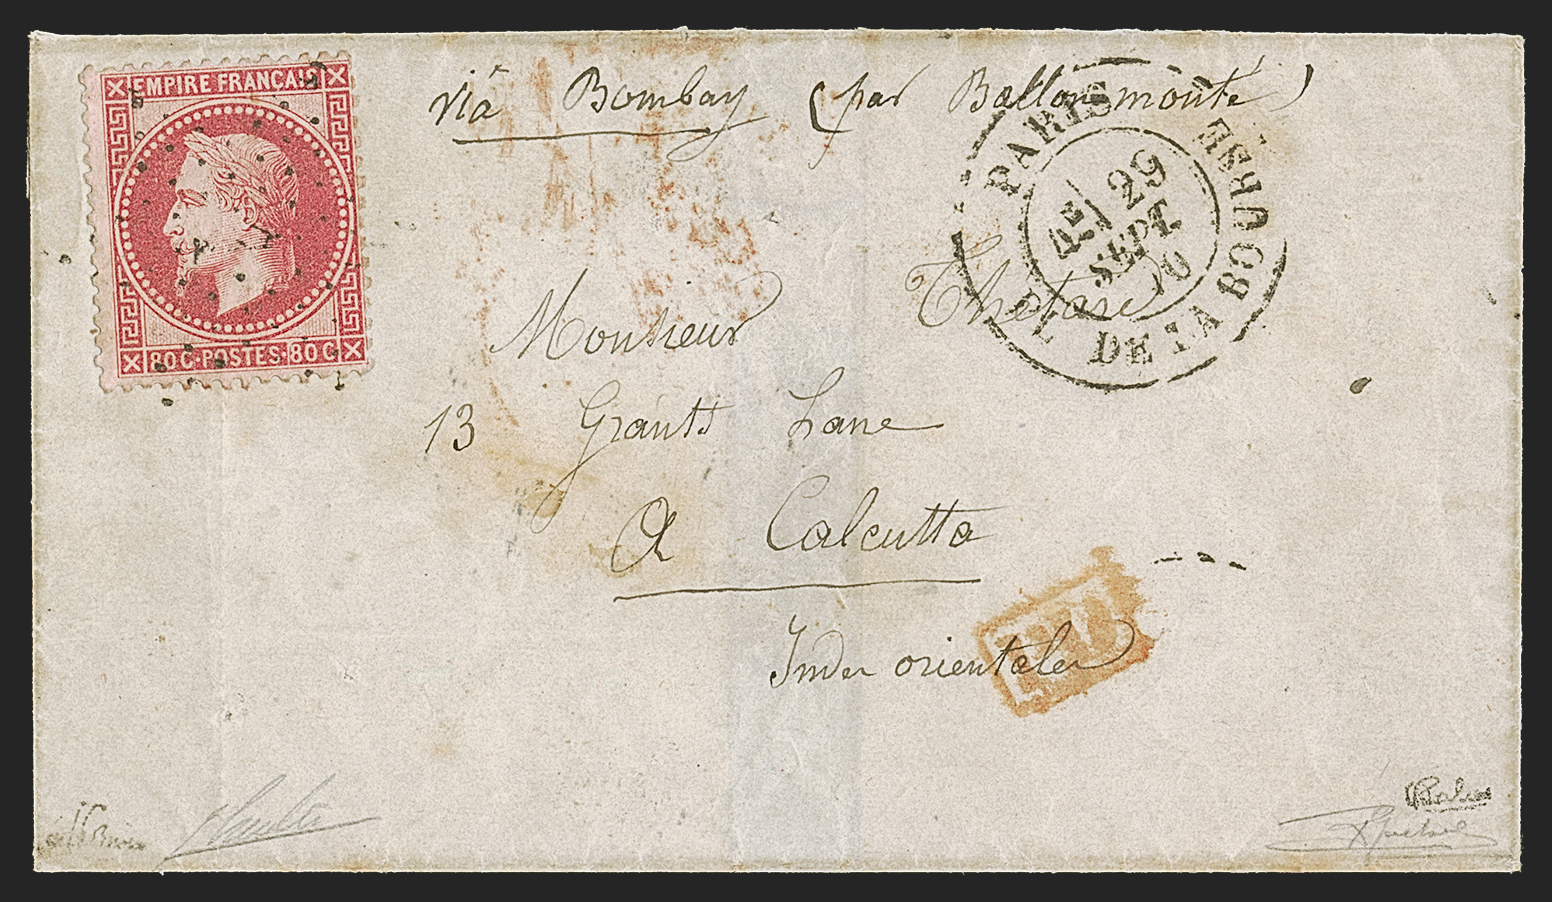 EMPIRE FRANÇAIS
80 C · POSTES · 80 C
viâ Bombay (par Ballon monté)
PARIS
DE LA BOURSE
4E 29
SEPT.
70
Monsieur
13 Grants Lane
A Calcutta
Indes orientales